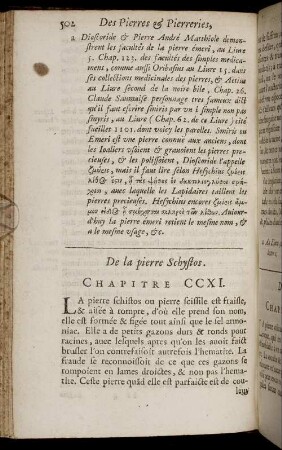 502 Des Pierres & Pierreries,
a. Dioscoride & Pierre André Matthiole demon-
strent les facultés de la pierre émeri, au Liure
5. Chap. 123. des facultés des simples medica-
mens, comme aussi Oribasius au Liure 15. dans
ses collections medicinales des pierres, & Aëtius
au Liure second de la noire bile, Chap. 26.
Claude Saumaise personnage tres fameux dict
qu'il faut escrire smiris par vn i simple non pas
smyris, au Liure (Chap. 62. de ce Liure) cité
fueillet 1101. dont voicy les paroles. Smiris ou
Emeri est vne pierre commune aux anciens, dont
les Ioaliers vsoient & grauoient les pierres pre-
cieuses, & les polissoient, Dioscoride l'appelle
mais il faut lire selon Hesychius
auec laquelle les Lapidaires taillent les
pierres precieuses. Hesychius encores
Aujour-
d'huy la pierre émeri retient le mesme nom, &
a le mesme vsage, &c.
De la pierre Schystos.
CHAPITRE CCXI.
LA pierre schistos ou pierre scissile est fraisle,
& aisée à rompre, d'où elle prend son nom,
elle est formée & figée tout ainsi que le sel armo-
niac. Elle a de petits gazons durs & ronds pour
racines, auec lesquels apres qu'on les auoit faict
brusler l'on contrefaisoit autrefois l'hemathe. La
fraude se reconnoissoit de ce que ces gazons se
rompoient en lames droictes, & non pas l'hema-
thte. Ceste pierre quād elle est parfaicte est de cou-
leur